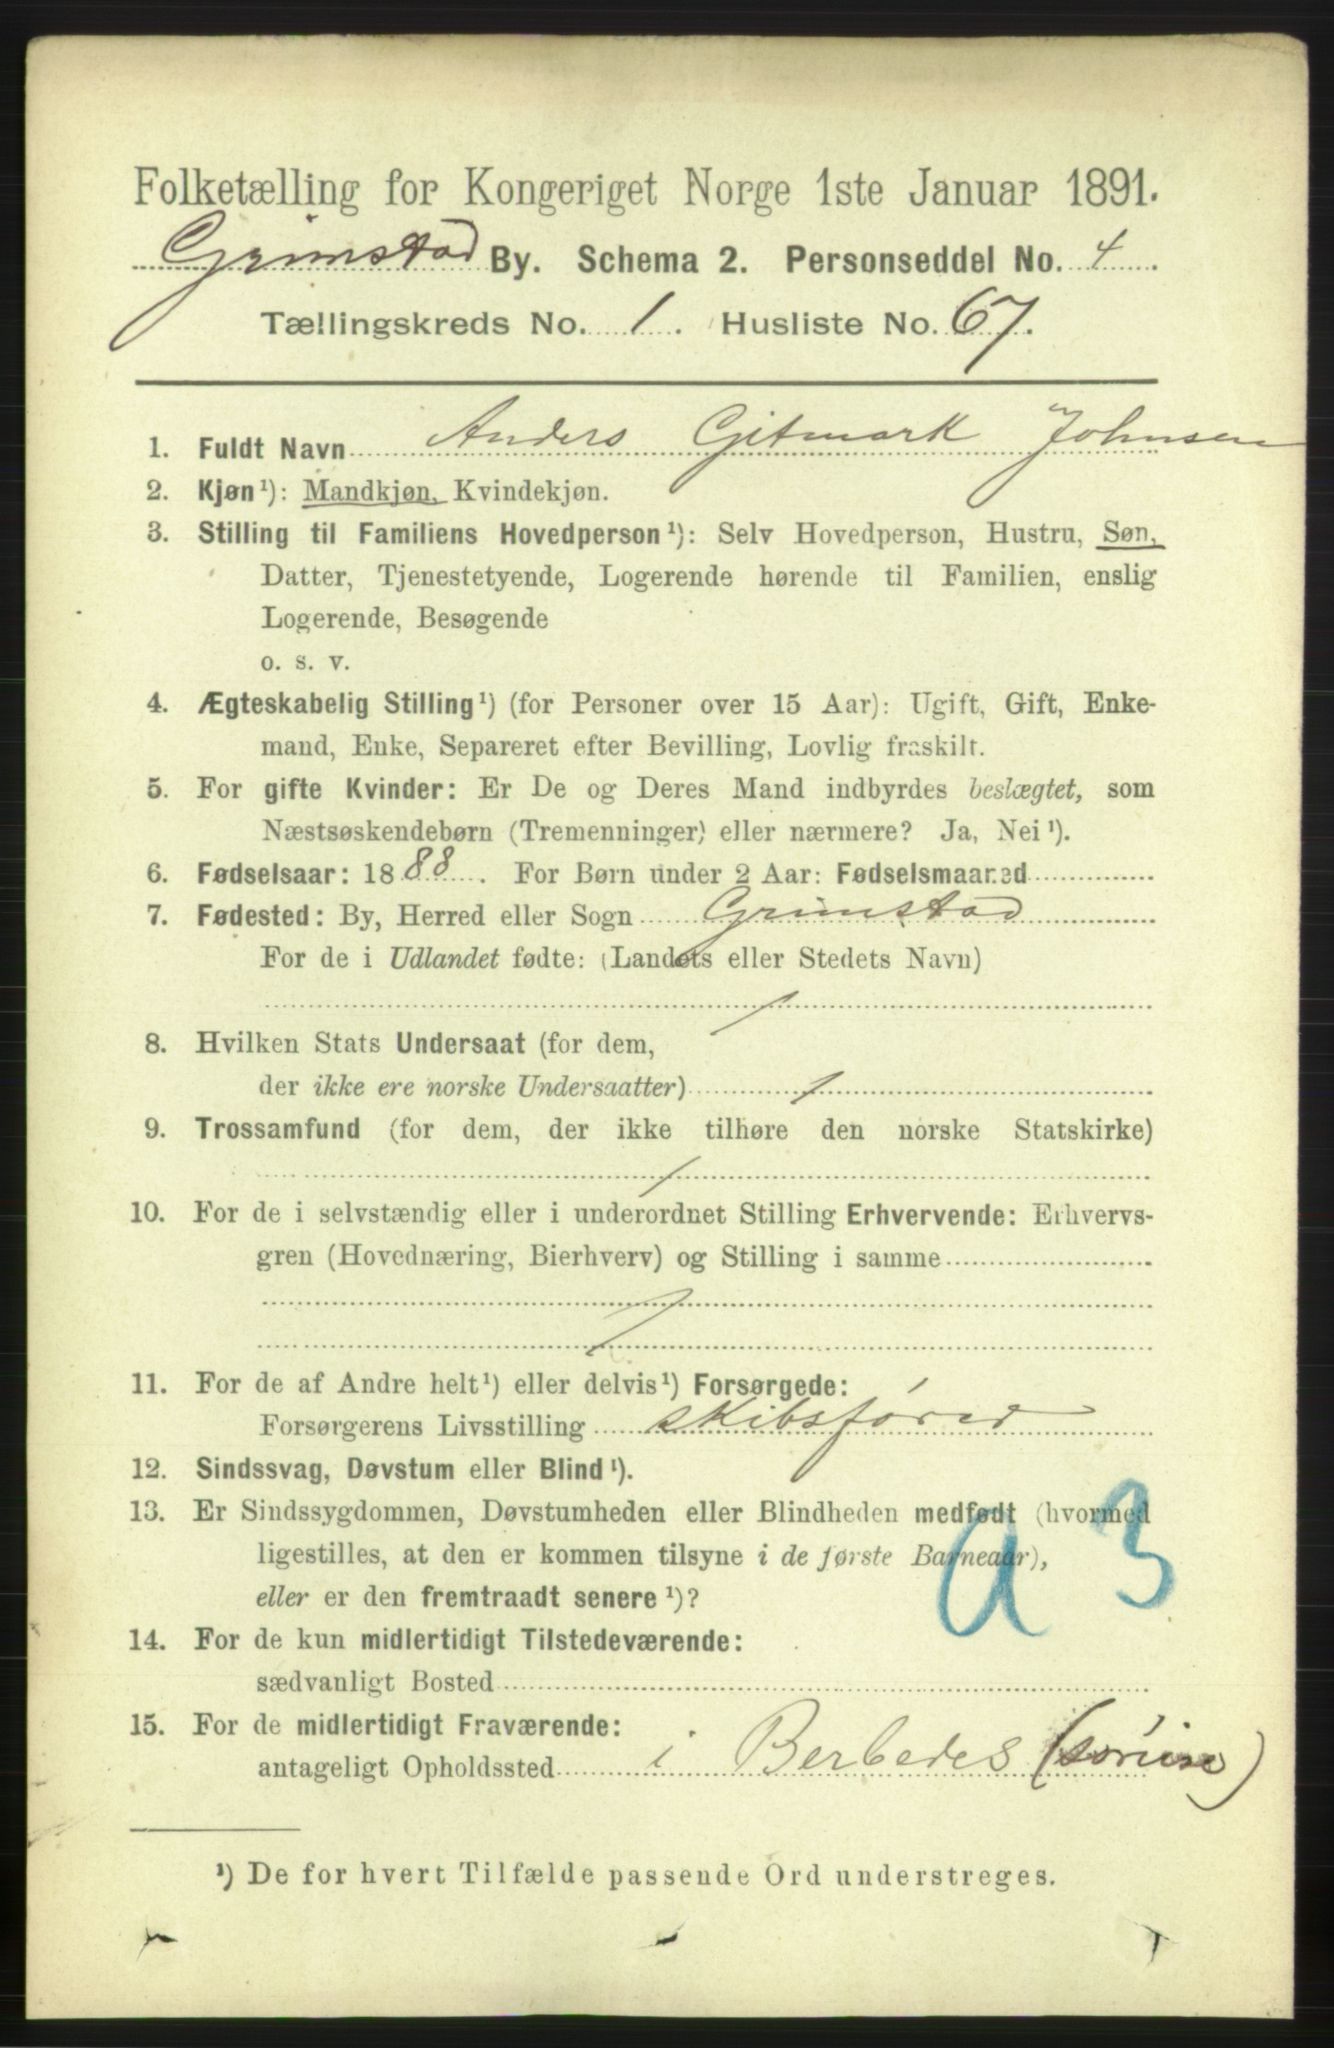 Folketælling for Kongeriget Norge 1ste Januar 1891.
Grimstad By. Schema 2. Personseddel No. 4.
Tællingskreds No. 1. Husliste No. 67.
1. Fuldt Navn Anders Gitmark Johnsen
2. Kjøn ¹): Mandkjøn, Kvindekjøn.
3. Stilling til Familiens Hovedperson ¹): Selv Hovedperson, Hustru, Søn,
Datter, Tjenestetyende, Logerende hørende til Familien, enslig
Logerende, Besøgende
o. s. v.
4. Ægteskabelig Stilling ¹) (for Personer over 15 Aar): Ugift, Gift, Enke-
mand, Enke, Separeret efter Bevilling, Lovlig fraskilt.
5. For gifte Kvinder: Er De og Deres Mand indbyrdes beslægtet, som
Næstsøskendebørn (Tremenninger) eller nærmere? Ja, Nei ¹).
6. Fødselsaar: 1888. For Børn under 2 Aar: Fødselsmaaned
7. Fødested: By, Herred eller Sogn Grimstad
For de i Udlandet fødte: (Landets eller Stedets Navn)
8. Hvilken Stats Undersaat (for dem,
der ikke ere norske Undersaatter)
9. Trossamfund (for dem, der ikke tilhøre den norske Statskirke)
10. For de i selvstændig eller i underordnet Stilling Erhvervende: Erhvervs-
gren (Hovednæring, Bierhverv) og Stilling i samme
11. For de af Andre helt ¹) eller delvis ¹) Forsørgede:
Forsørgerens Livsstilling skibsfører
12. Sindssvag, Døvstum eller Blind ¹).
13. Er Sindssygdommen, Døvstumheden eller Blindheden medfødt (hvormed
ligestilles, at den er kommen tilsyne i de første Barneaar),
eller er den fremtraadt senere ¹)?
a 3
14. For de kun midlertidigt Tilstedeværende:
sædvanligt Bosted
15. For de midlertidigt Fraværende:
antageligt Opholdssted i Berbedes
¹) De for hvert Tilfælde passende Ord understreges.